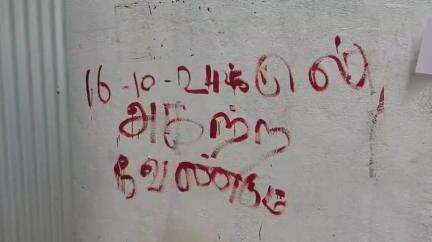 16-10-24க்குள்
அகற்ற
வேண்டும்